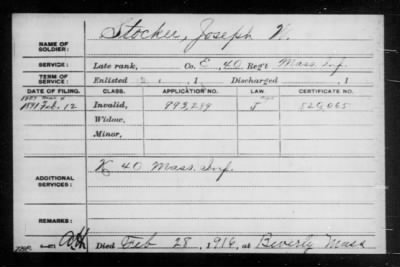 NAME OF SOLDIER: Stocker, Joseph W.
SERVICE: Late rank, Co. E, 40 Reg't Mass. Inf.
TERM OF SERVICE: Enlisted , 1 Discharged , 1
DATE OF FILING. CLASS. APPLICATION NO. LAW. CERTIFICATE NO.
1891 Feb. 12 Invalid, 993,299 520,065
Widow,
Minor,
ADDITIONAL SERVICES: K 40 Mass. Inf.
REMARKS:
Died Feb 28, 1916, at Beverly Mass